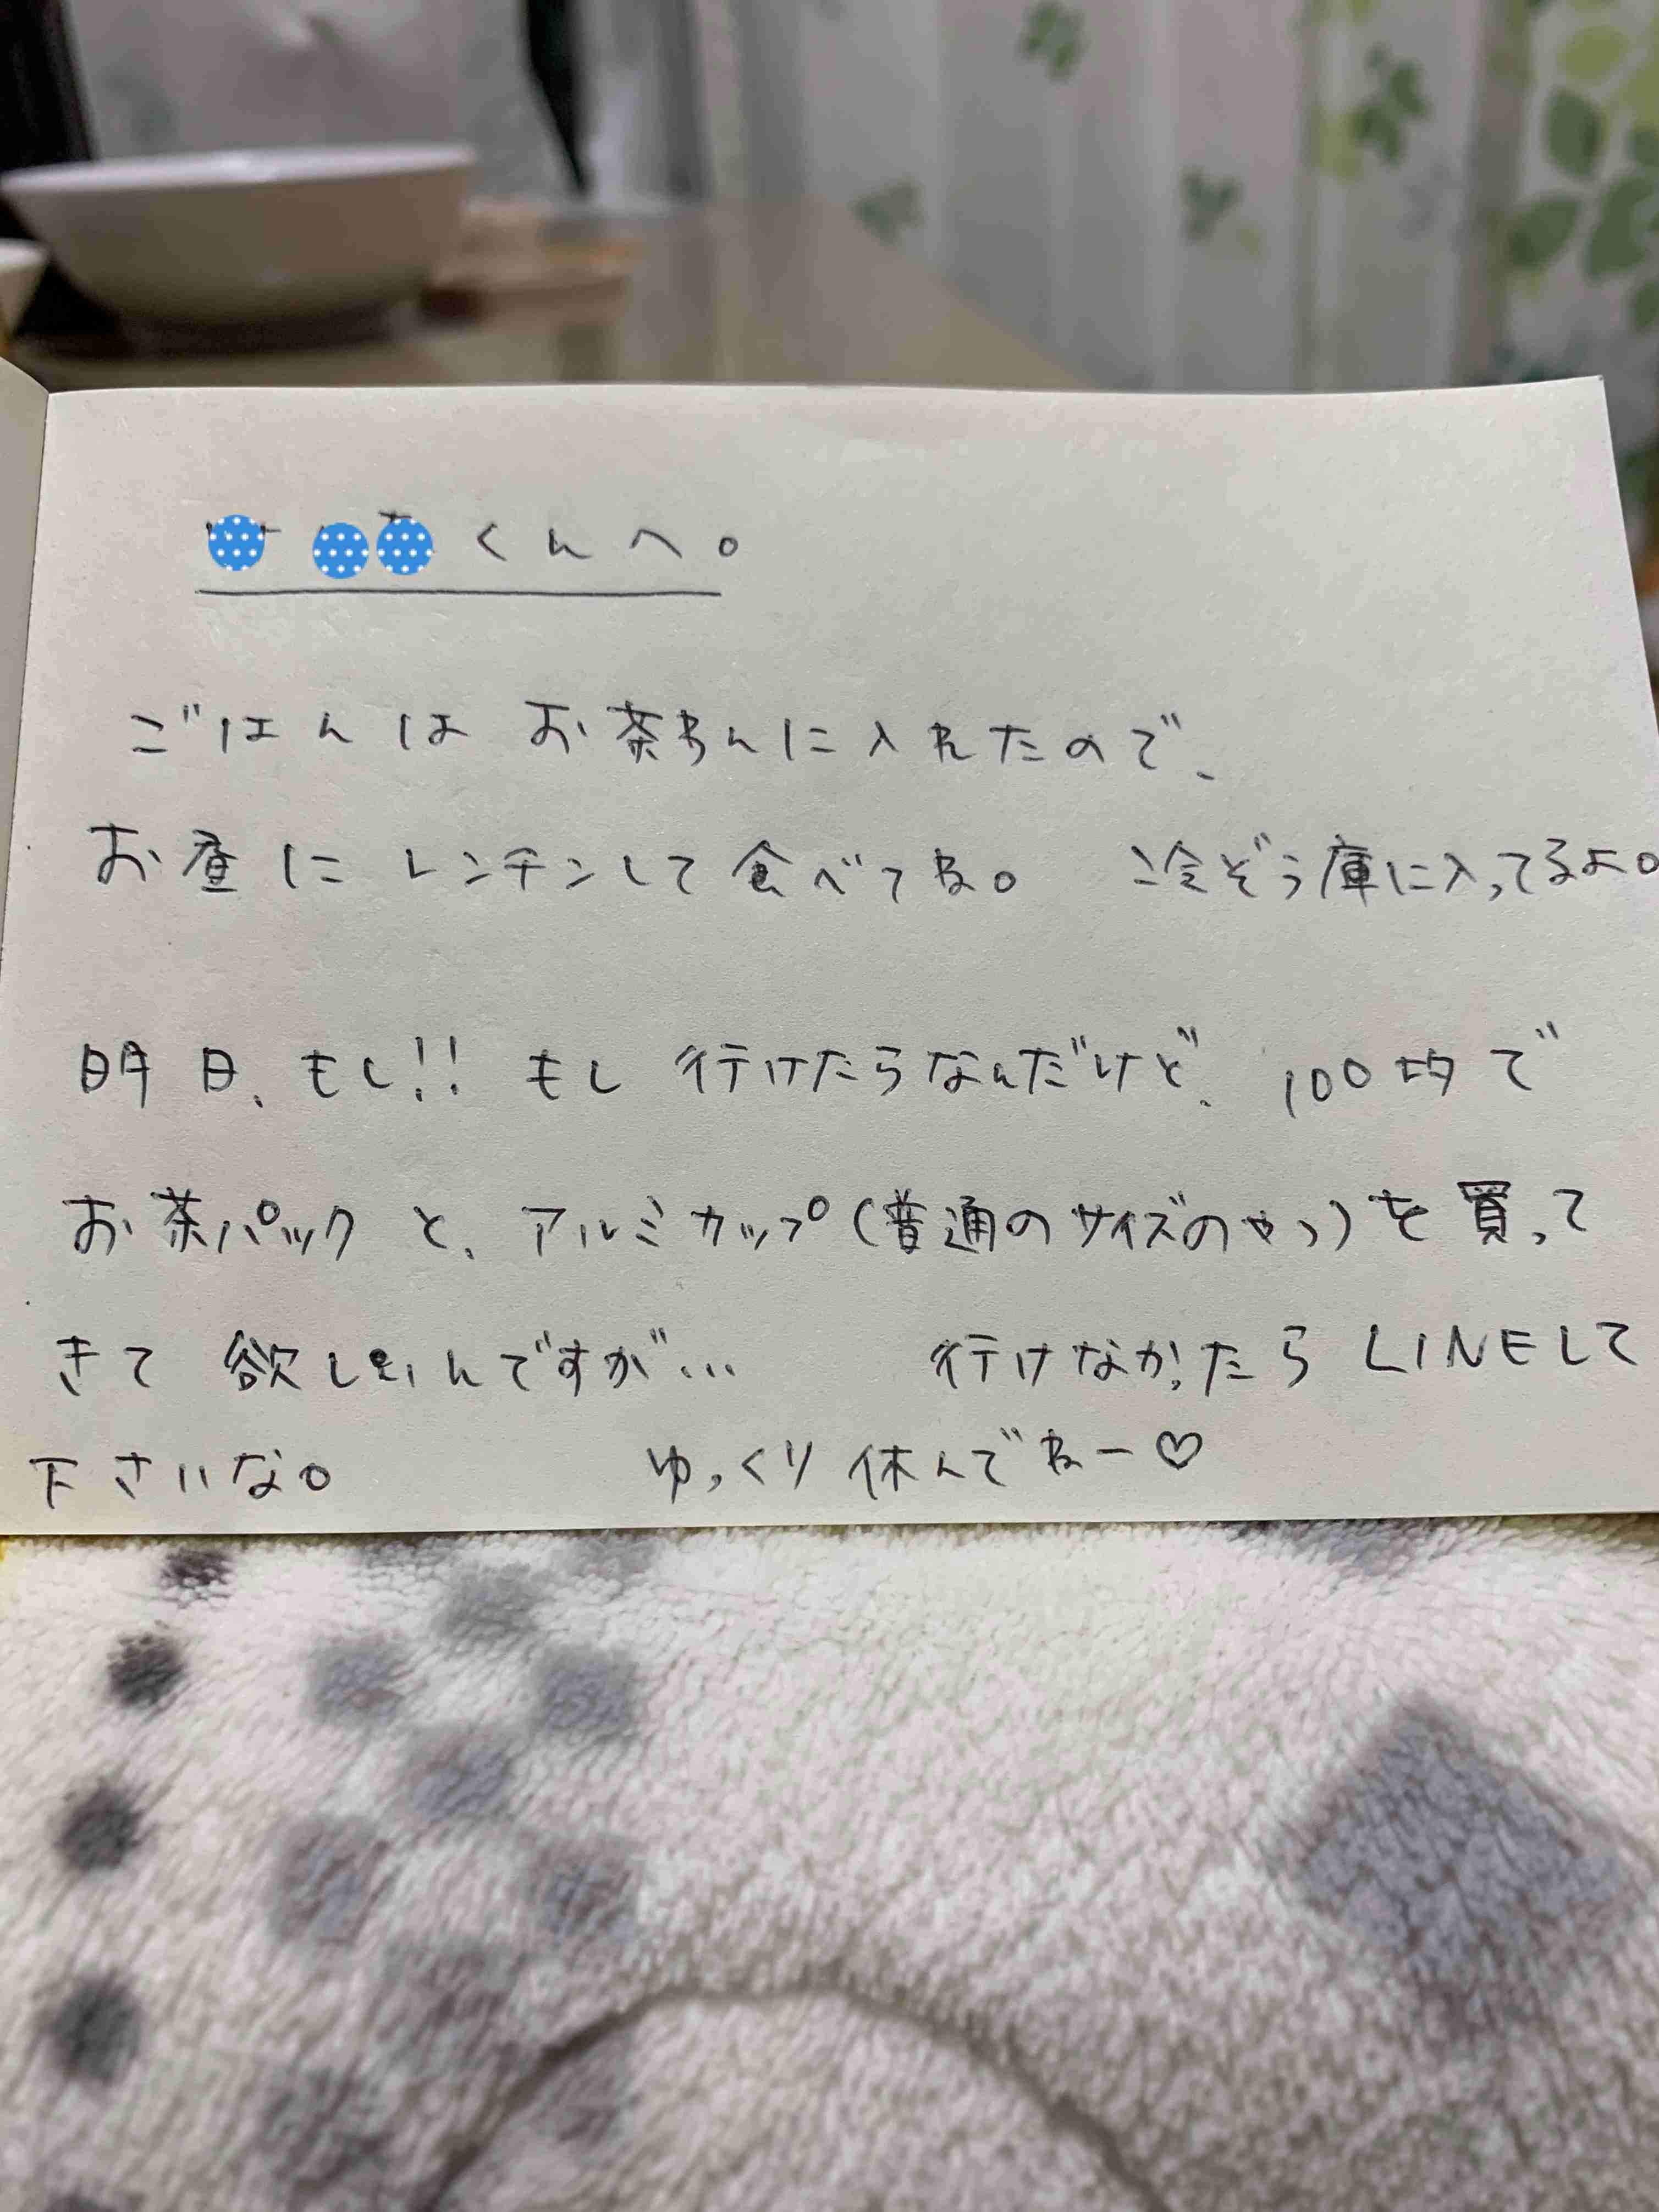 くんへ。
ごはんは お茶わんに入れたので、
お昼に レンチンして食べてね。 冷ぞう庫に入ってるよ。
明日、もし!! もし 行けたらなんだけど、100均で
お茶パックと、アルミカップ(普通のサイズのやつ)を買って
きて 欲しいんですが… 行けなかったら LINEして
下さいな。 ゆっくり休んでねー♡